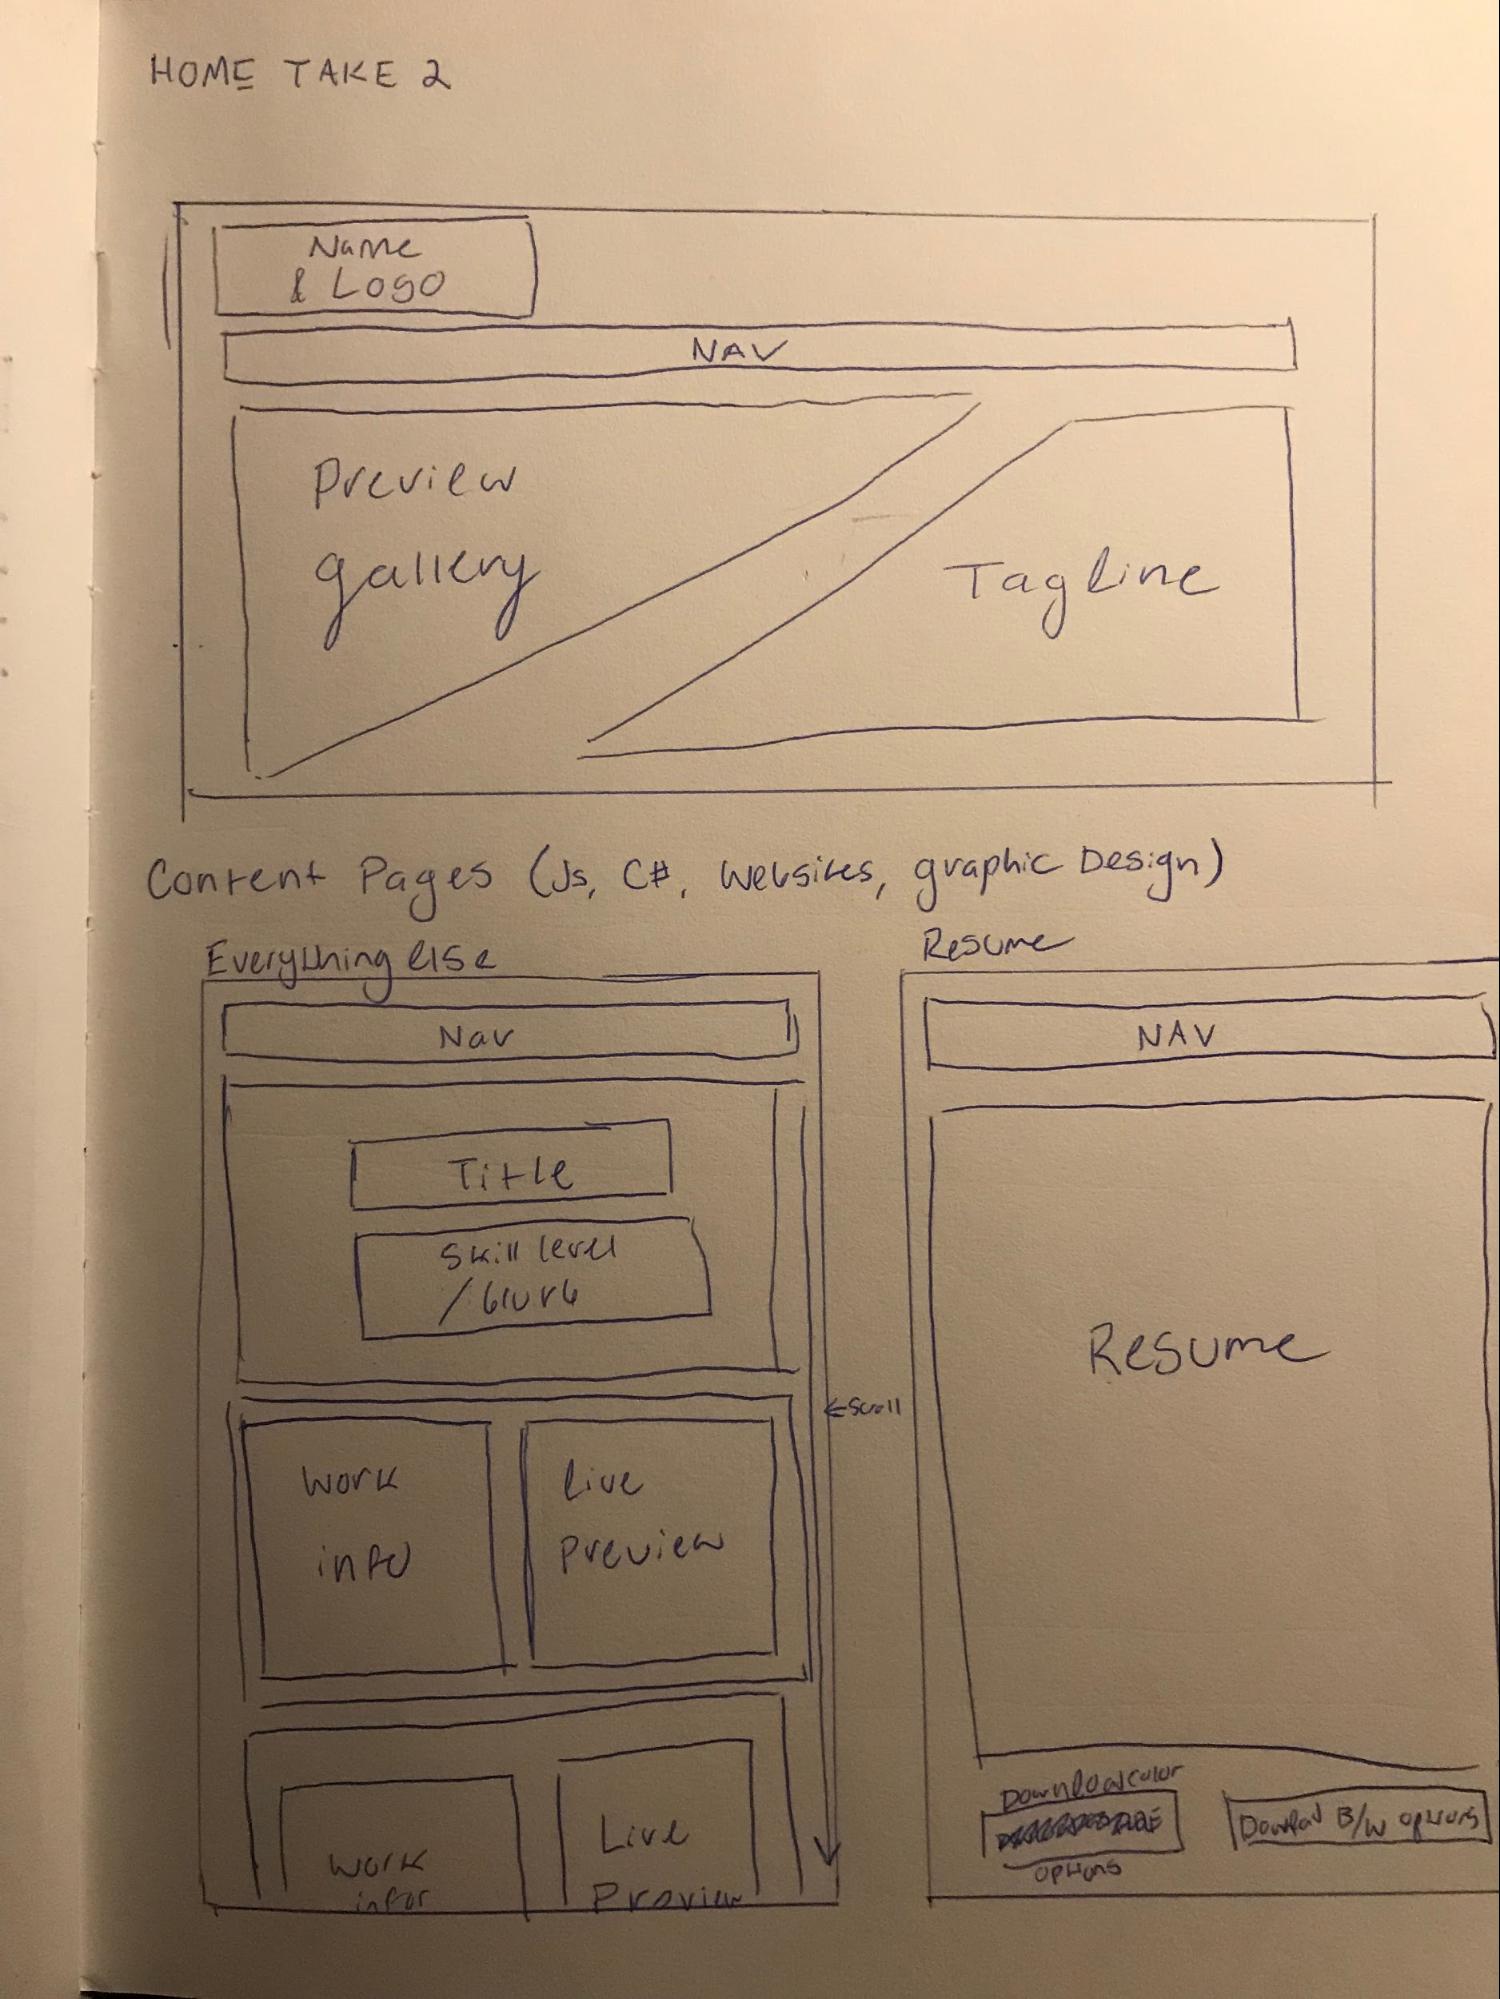 HOME TAKE 2
Name
& Logo
NAV
Preview
gallery
Tagline
Content Pages (Js, C#, Websites, graphic Design)
Everything else
Nav
Title
Skill level
/blurb
← Scroll
Work
info
live
preview
Work
infor
Live
Preview
Resume
NAV
Resume
Download color
options
Download B/W options